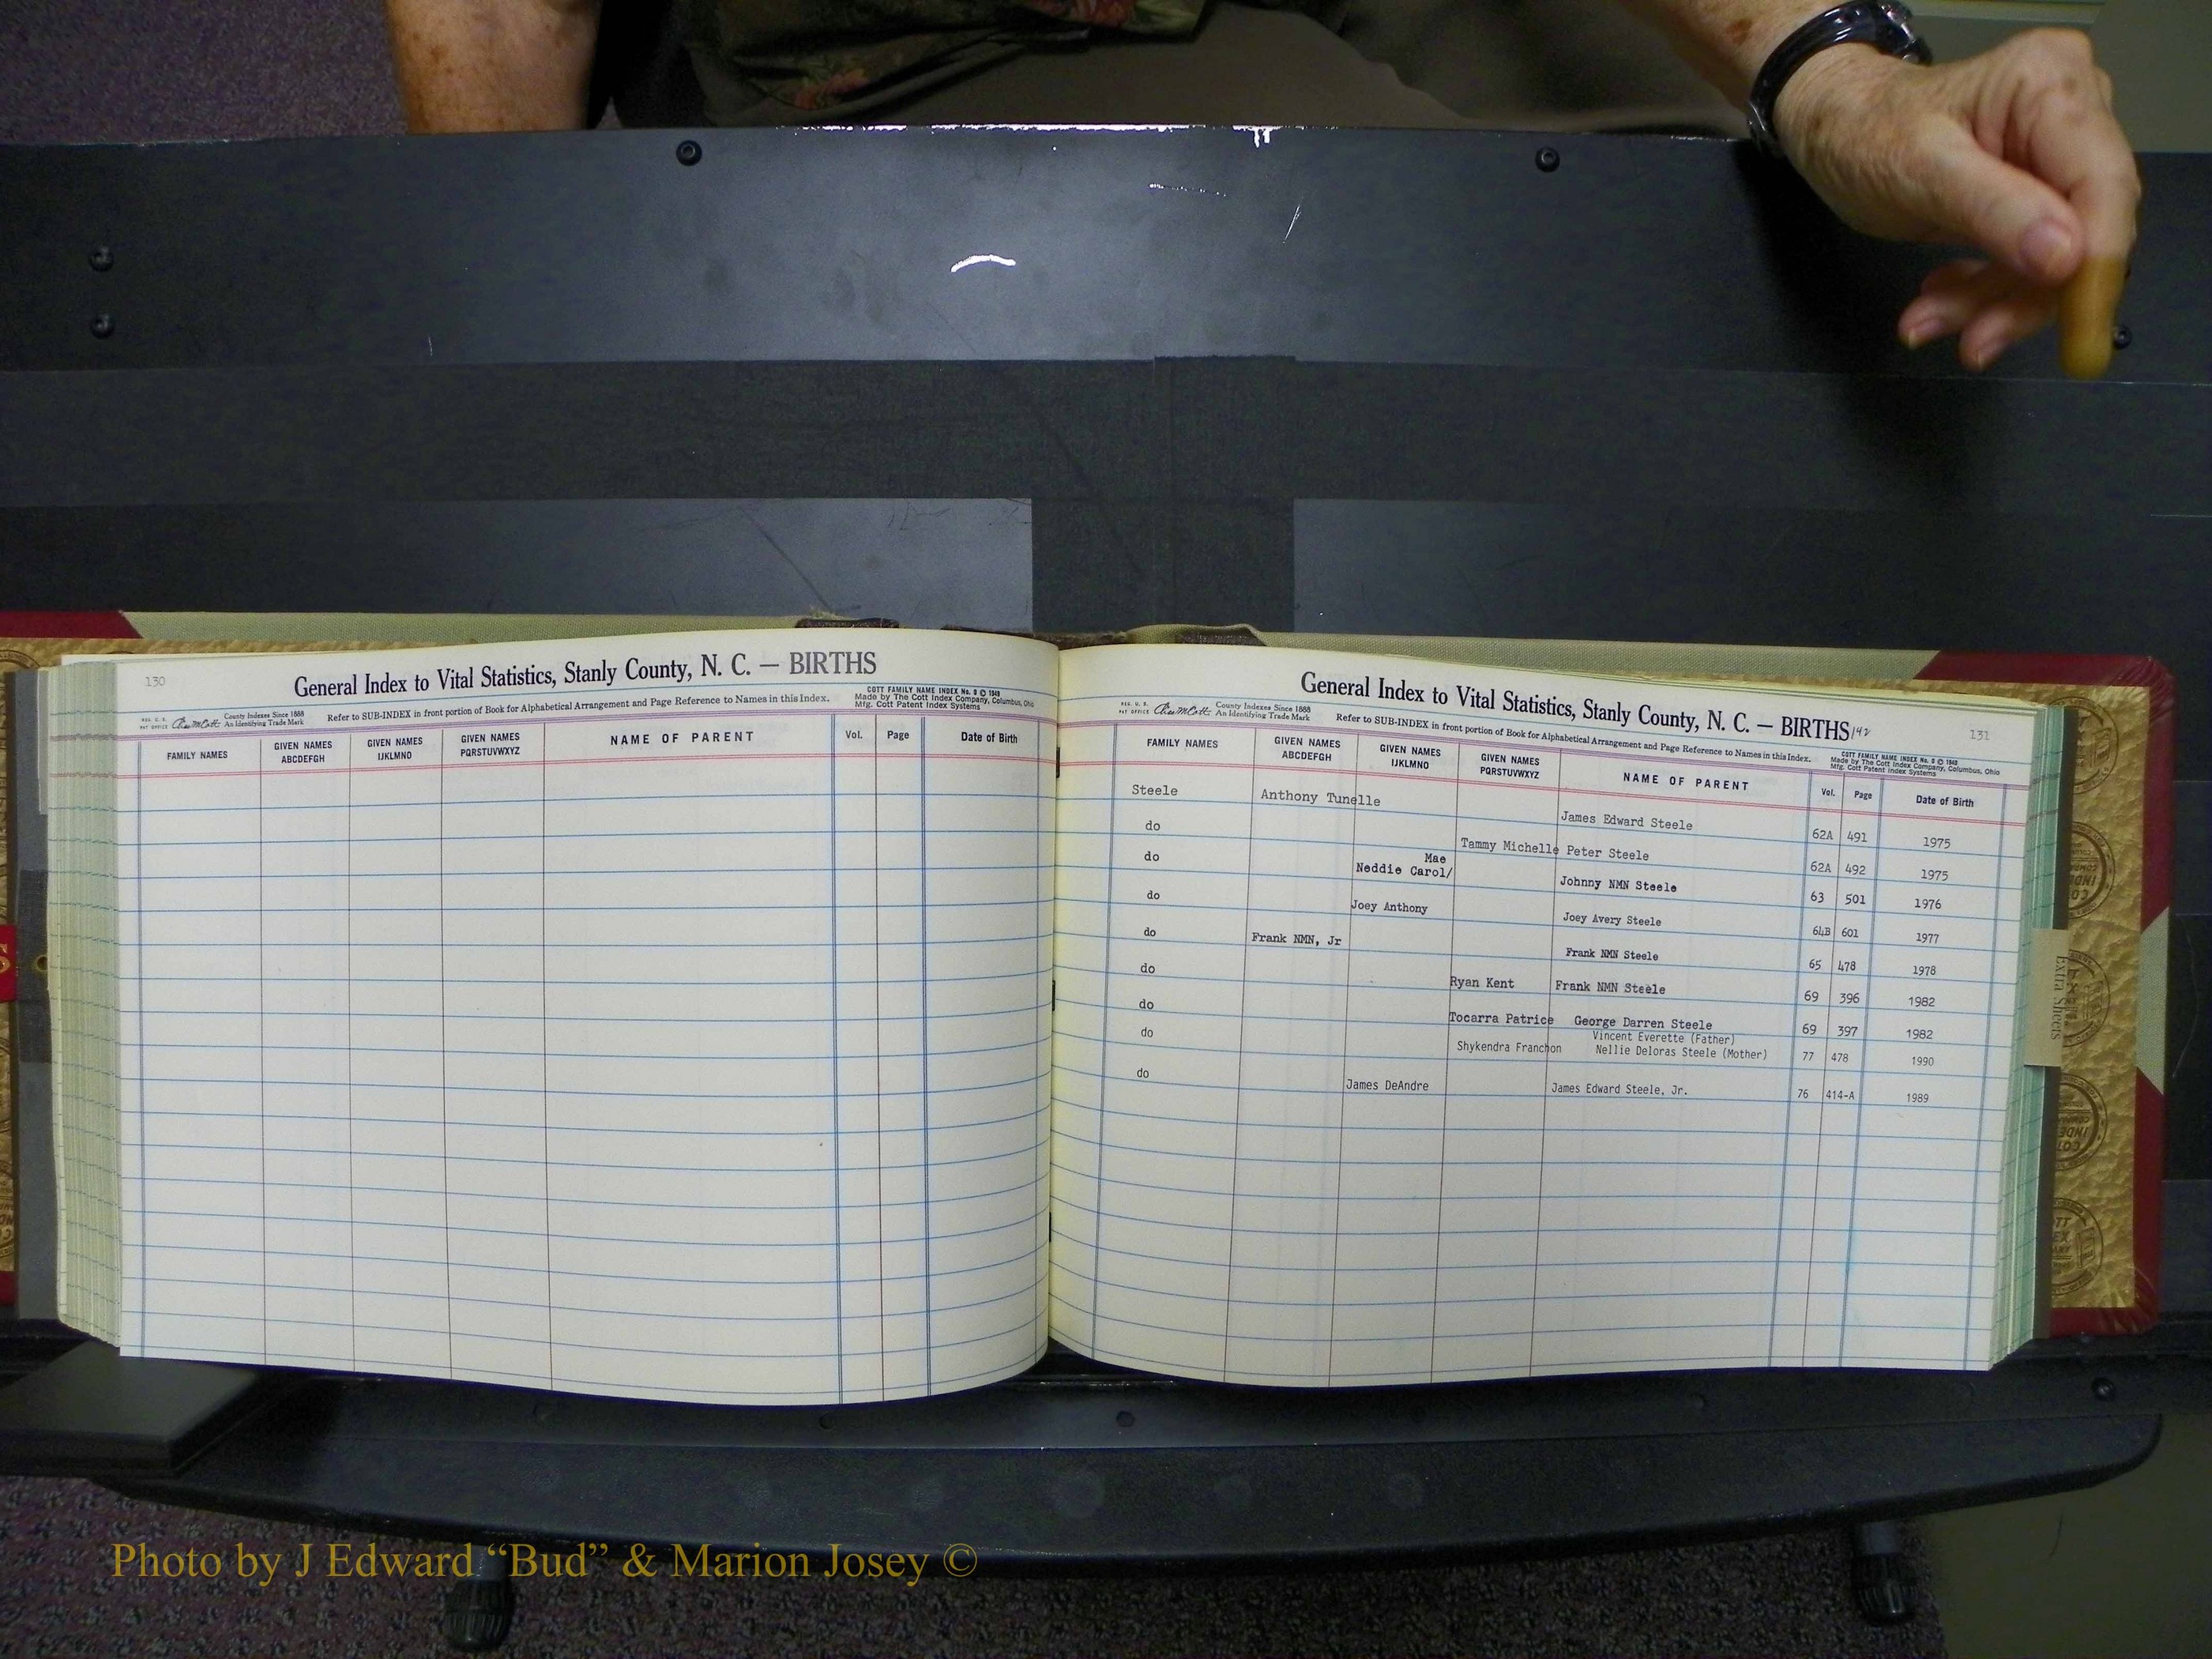 130
General Index to Vital Statistics, Stanly County, N. C. — BIRTHS
REG. U. S. PAT OFFICE
County Indexes Since 1888
An Identifying Trade Mark
Refer to SUB-INDEX in front portion of Book for Alphabetical Arrangement and Page Reference to Names in this Index.
COTT FAMILY NAME INDEX No. 8 © 1949
Made by The Cott Index Company, Columbus, Ohio
Mfg. Cott Patent Index Systems
FAMILY NAMES
GIVEN NAMES ABCDEFGH
GIVEN NAMES IJKLMNO
GIVEN NAMES PQRSTUVWXYZ
NAME OF PARENT
Vol.
Page
Date of Birth
General Index to Vital Statistics, Stanly County, N. C. — BIRTHS 142
131
REG. U. S. PAT OFFICE
County Indexes Since 1888
An Identifying Trade Mark
Refer to SUB-INDEX in front portion of Book for Alphabetical Arrangement and Page Reference to Names in this Index.
COTT FAMILY NAME INDEX No. 8 © 1949
Made by The Cott Index Company, Columbus, Ohio
Mfg. Cott Patent Index Systems
FAMILY NAMES
GIVEN NAMES ABCDEFGH
GIVEN NAMES IJKLMNO
GIVEN NAMES PQRSTUVWXYZ
NAME OF PARENT
Vol.
Page
Date of Birth
Steele Anthony Tunelle James Edward Steele 62A 491 1975
do Tammy Michelle Peter Steele 62A 492 1975
do Mae
Neddie Carol/ Johnny NMN Steele 63 501 1976
do Joey Anthony Joey Avery Steele 64B 601 1977
do Frank NMN, Jr Frank NMN Steele 65 478 1978
do Ryan Kent Frank NMN Steele 69 396 1982
do Tocarra Patrice George Darren Steele 69 397 1982
Vincent Everette (Father)
do Shykendra Franchon Nellie Deloras Steele (Mother) 77 478 1990
do James DeAndre James Edward Steele, Jr. 76 414-A 1989
Extra Sheets
Photo by J Edward “Bud” & Marion Josey ©